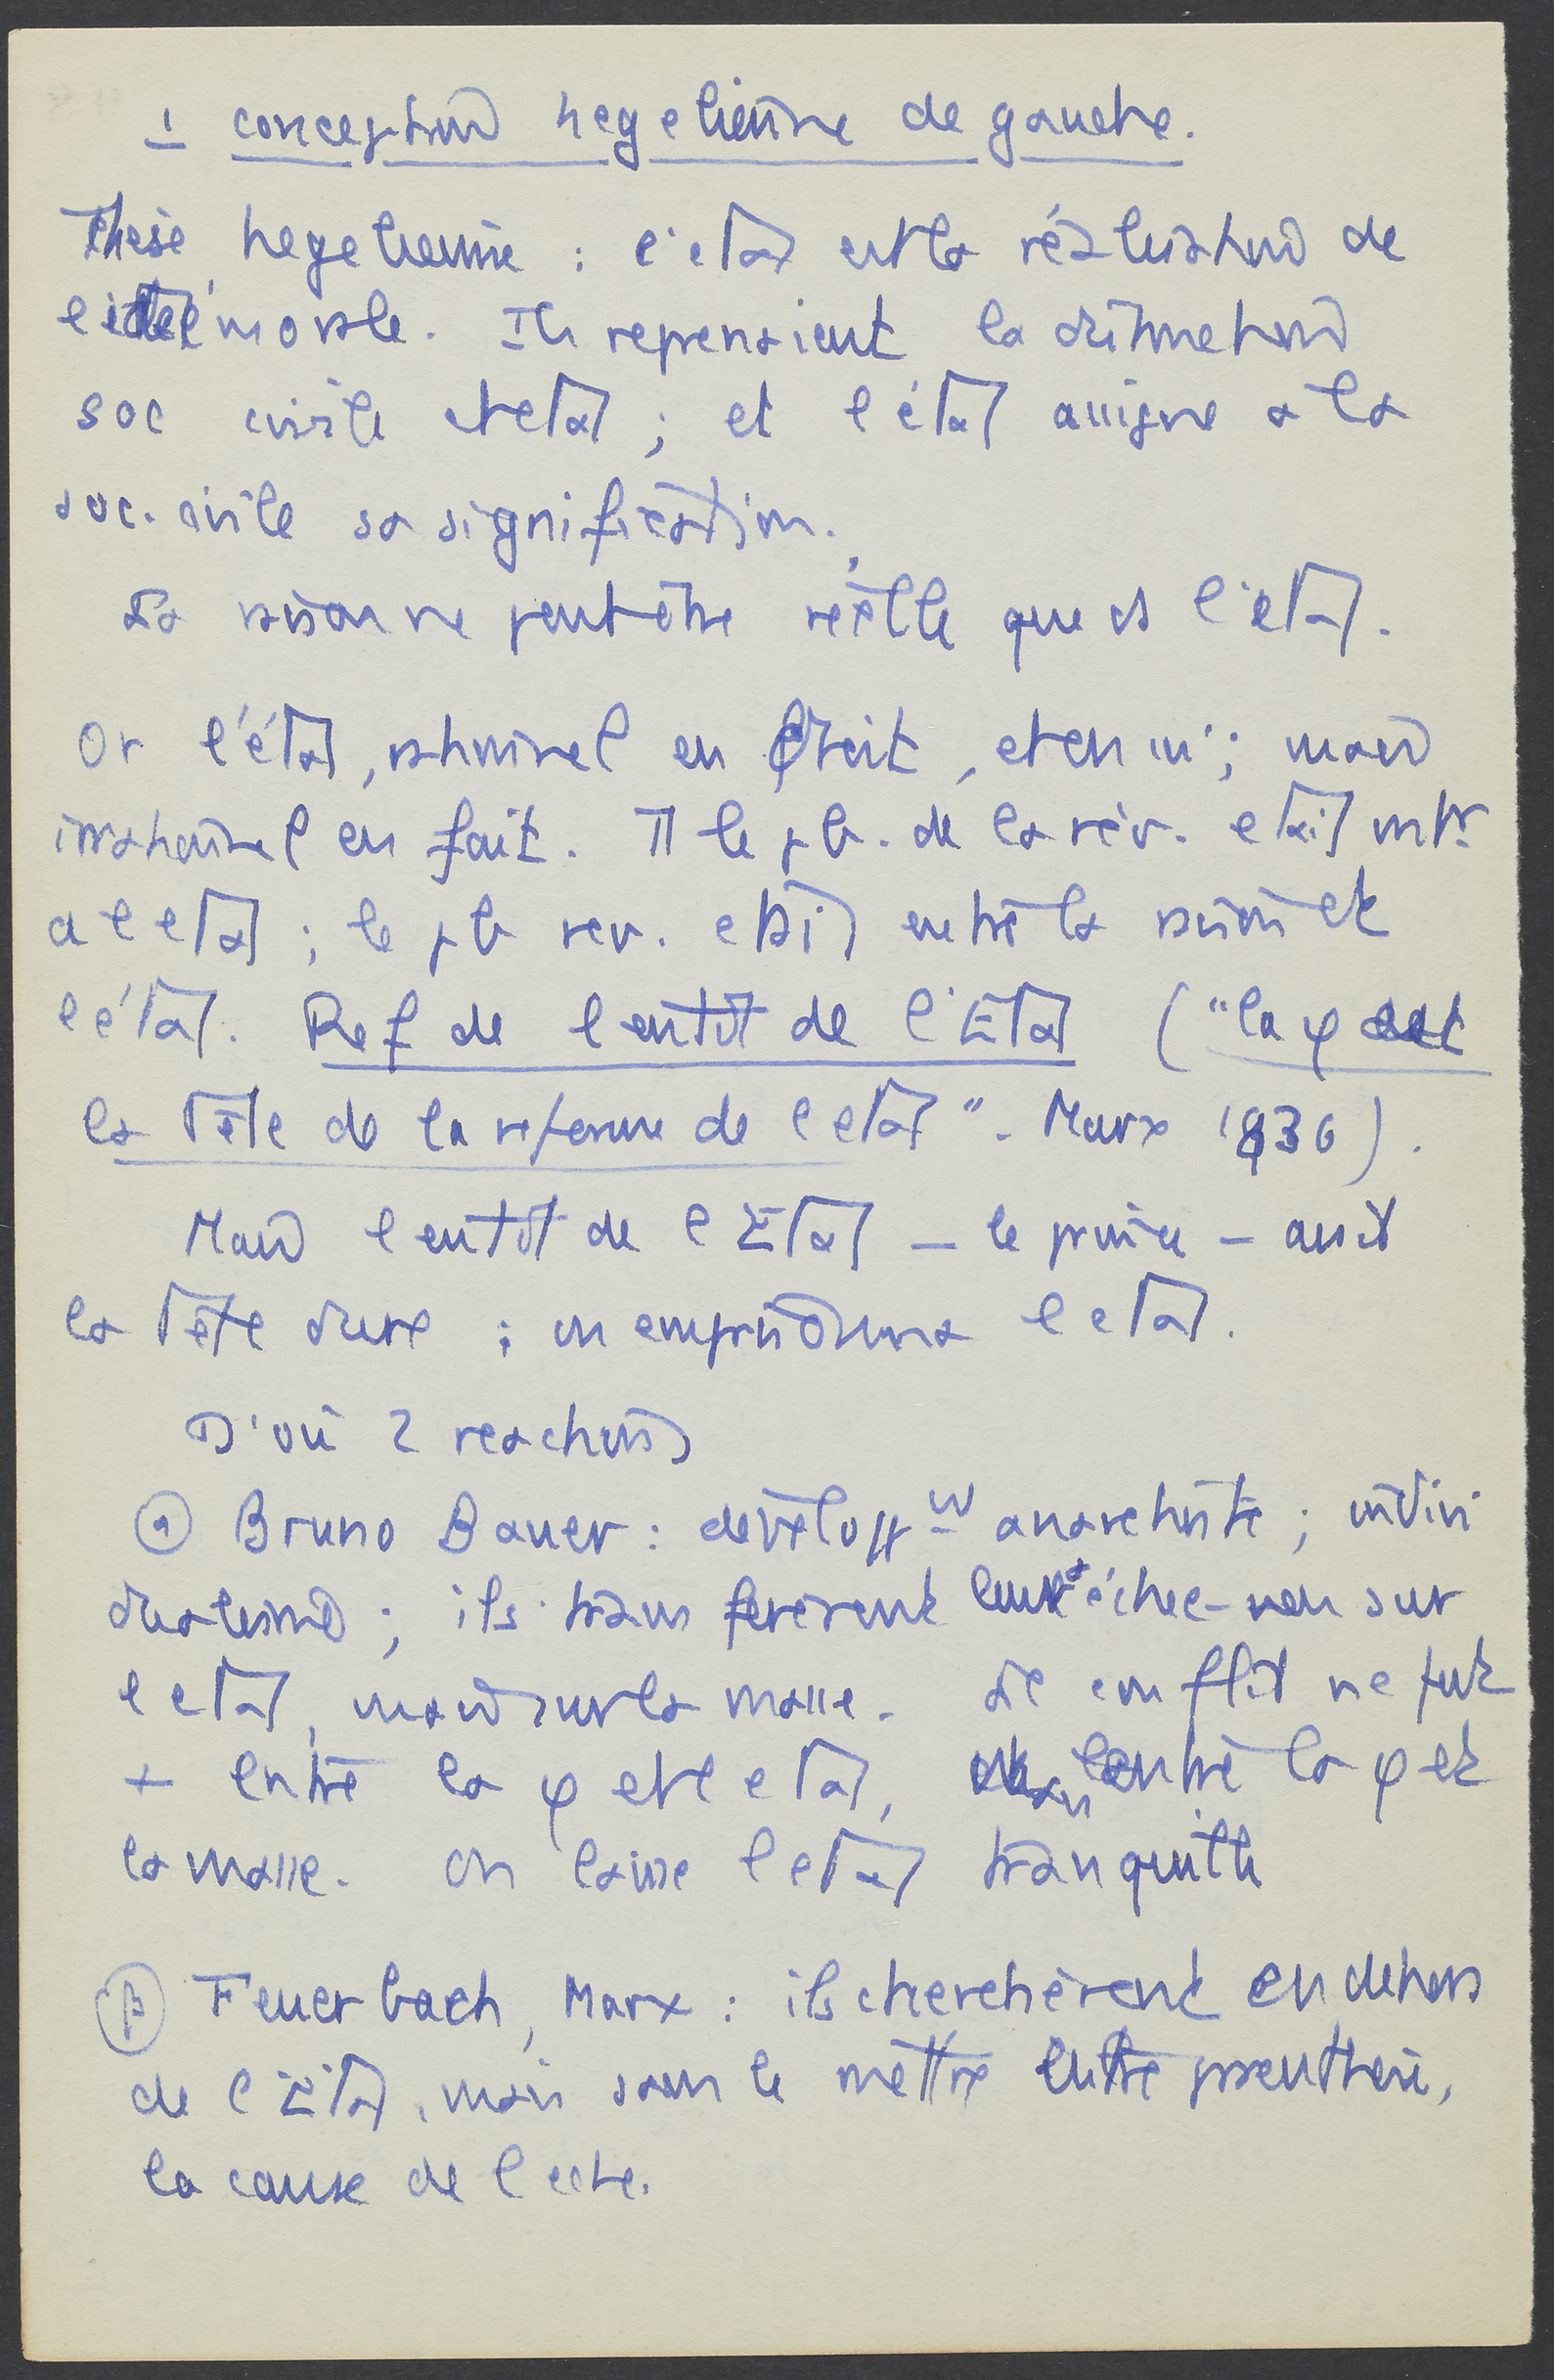 1 conception hegelienne de gauche.
Thèse hegelienne : l'etat est la réalisation de
l'idée morale. Ils reprenaient la distinction
soc civile et etat ; et l'état assigne a la
soc. civile sa signification.
La raison ne peut être réelle que ds l'état.
Or l'état, rationnel en droit, et en ; mais
irrationnel en fait. le pb. de la rév. etait intr
a l etat ; le pb rev. etait entre la raison et
l'état. Ref de l entdt de l'Etat ("la φ est
la tête de la reforme de l etat". Marx 1836).
Mais l entdt de l Etat – le prince – avait
la tête dure ; on emprisonna l etat.
D'où 2 reactions
α Bruno Bauer : developpt anarchiste ; indivi
dualisme ; ils transférèrent leur échec – non sur
l etat, mais sur la masse. Le conflit ne fut
+ entre la φ et l etat, mais entre la φ et
la masse. On laisse l etat tranquille
β Feuerbach, Marx : ils cherchèrent en dehors
de l Etat, mais sans le mettre entre parenthèse,
la cause de l echec.